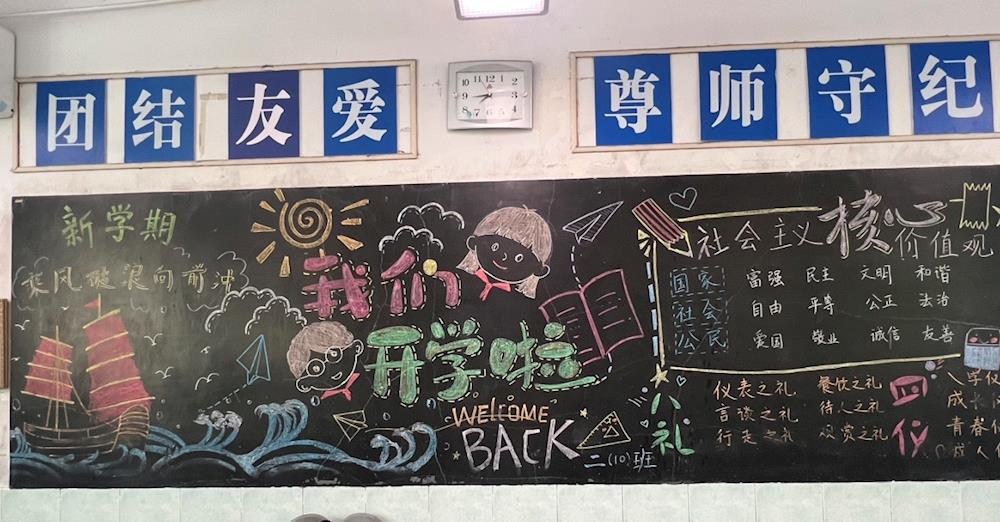 团结友爱
尊师守纪
10 11 12 1 2 3 4 5 6 7 8 9
新学期
乘风破浪向前冲
我们
开学啦
WELCOME
BACK
二(10)班
社会主义核心价值观
国家 富强 民主 文明 和谐
社会 自由 平等 公正 法治
公民 爱国 敬业 诚信 友善
八礼
仪表之礼 餐饮之礼
言谈之礼 待人之礼
行走之礼 观赏之礼
仪
入学仪
成长
青春仪
成人仪